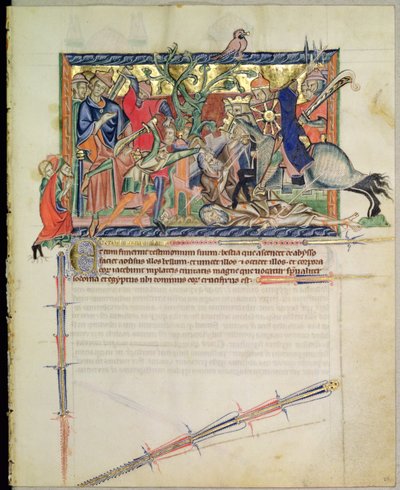 cum finierint testimonium suum bestia que ascendet de abysso
faciet aduersus illos bellum et uincet illos et occidet illos et corpora
eoꝝ iacebunt in plateis ciuitatis magne que uocatur spūaliter
sodoma et egyptus ubi dominus eoꝝ crucifixus est